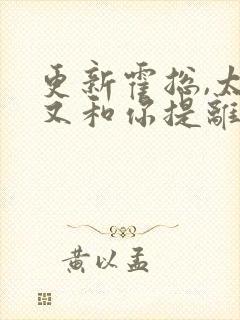 更新霍总,太
又和你提离
黄以孟